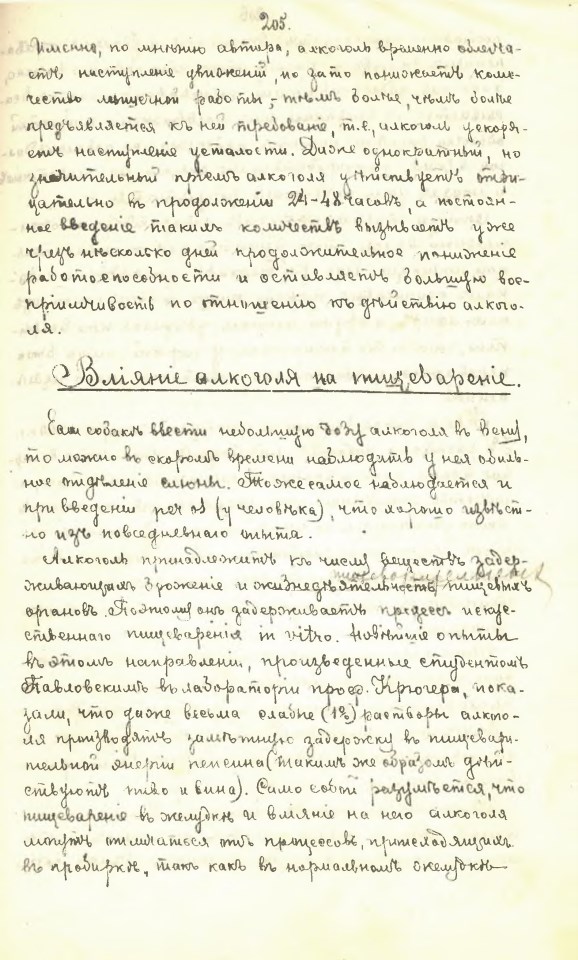 205.
Именно, по мнѣнію автора, алкоголь временно облегча-
етъ наступленіе движеній, но зато понижаетъ коли-
чество мышечной работы, – тѣмъ болѣе, чѣмъ болѣе
предъявляется къ ней требованіе, т.е., алкоголь ускоря-
етъ наступленіе усталости. Даже однократный, но
значительный пріемъ алкоголя дѣйствуетъ отри-
цательно въ продолженіи 24–48 часовъ, а постоян-
ное введеніе такихъ количествъ вызываетъ уже
чрезъ нѣсколько дней продолжительное пониженіе
работоспособности и оставляетъ большую вос-
пріимчивость по отношенію къ дѣйствію алкого-
ля.
Вліяніе алкоголя на пищевареніе.
Если собакѣ ввести небольшую дозу алкоголя въ вену,
то можно въ скоромъ времени наблюдать у нея обиль-
ное отдѣленіе слюны. Тоже самое наблюдается и
при введеніи per os (у человѣка), что хорошо извѣст-
но изъ повседневнаго опыта.
Алкоголь принадлежитъ къ числу веществъ задер-
живающихъ броженіе и жизнедѣятельность пищевыхъ
органовъ. Поэтому онъ задерживаетъ процессъ искус-
ственнаго пищеваренія in vitro. Новѣйшіе опыты
въ этомъ направленіи, произведенные студентомъ
Павловскимъ въ лабораторіи проф. Крюгера, пока-
зали, что даже весьма слабые (1%) растворы алкого-
ля производятъ замѣтную задержку въ пищевари-
тельной энергіи пепсина (такимъ же образомъ дѣй-
ствуютъ пиво и вина). Само собой разумѣется, что
пищевареніе въ желудкѣ и вліяніе на него алкоголя
могутъ отличаться отъ процессовъ, происходящихъ
въ пробиркѣ, такъ какъ въ нормальномъ желудкѣ